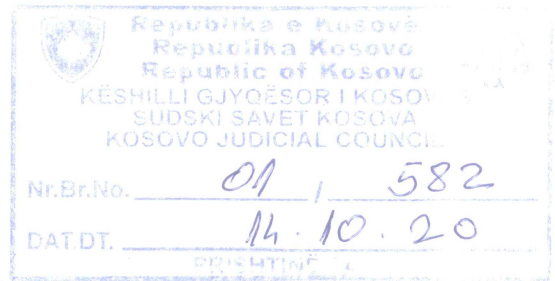 Republika e Kosovë
Republika Kosovo
Republic of Kosovo
KËSHILLI GJYQËSOR I KOSOV
SUDSKI SAVET KOSOVA
KOSOVO JUDICIAL COUNCIL
Nr.Br.No. 01 / 582
DAT.DT. 14.10.20
PRISHTINË